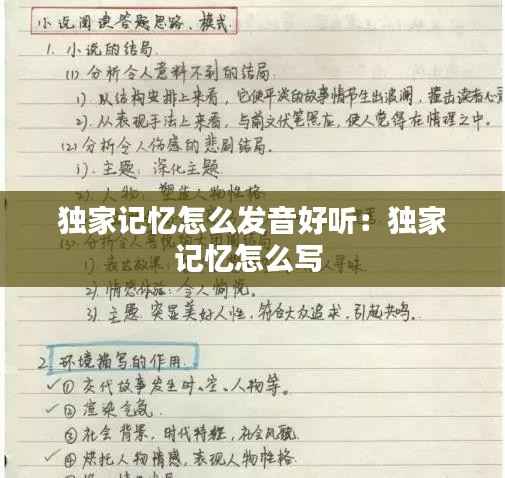 小说阅读答题思路、模式
1. 小说的结局
(1) 分析令人意料不到的结局
1). 从结构安排上来看，它使平淡的故事情节生出波澜，撞击读者心灵
2). 从表现手法上来看，与前文伏笔照应，使人觉得在情理之中。
(2) 分析令人伤感的悲剧结局。
1). 主题：深化主题
2). 人物：塑造人物性格
独家记忆怎么发音好听：独家
记忆怎么写
1) 表达效果：
寻味
2). 情感体验：令人愉悦。
3). 主题 突显美好人性，符合大众追求，引起共鸣。
2. 环境描写的作用.
① 交代故事发生时、空、人物等。
② 渲染气氛
③ 社会背景，时代特征，社会风貌
④ 烘托人物情感，表现人物性格